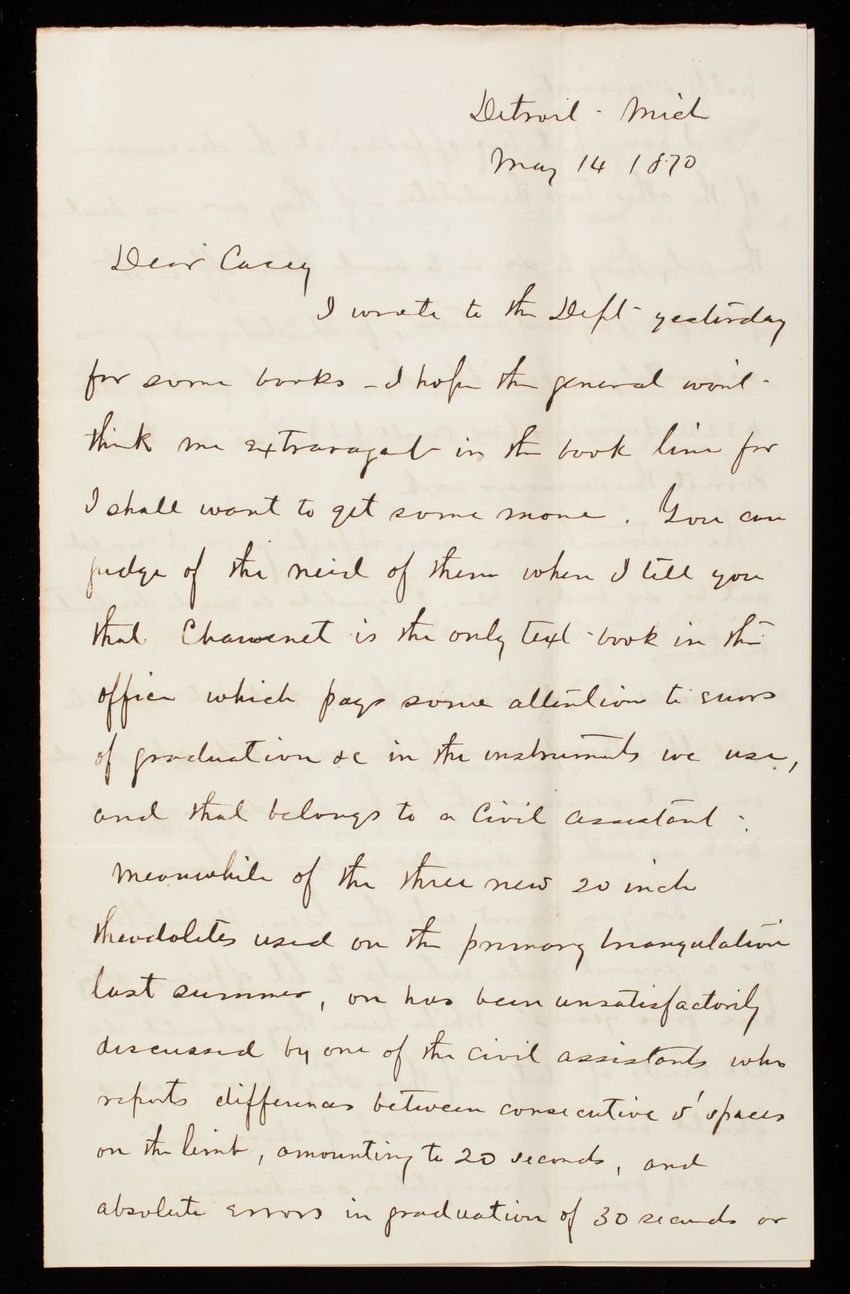 Detroit - Mich
May 14 1870
Dear Casey
I wrote to the Dept- yesterday
for some books - I hope the general won't
think me extravagant in the book line for
I shall want to get some more. You can
judge of the need of them when I tell you
that Chauvenet is the only text-book in the
office which pays some attention to errors
of graduation &c in the instruments we use,
and that belongs to a Civil assistant.
Meanwhile of the three new 20 inch
theodolites used on the primary triangulation
last summer, one has been unsatisfactorily
discussed by one of the civil assistants who
reports differences between consecutive 5' spaces
on the limb, amounting to 20 seconds, and
absolute errors in graduation of 30 seconds or